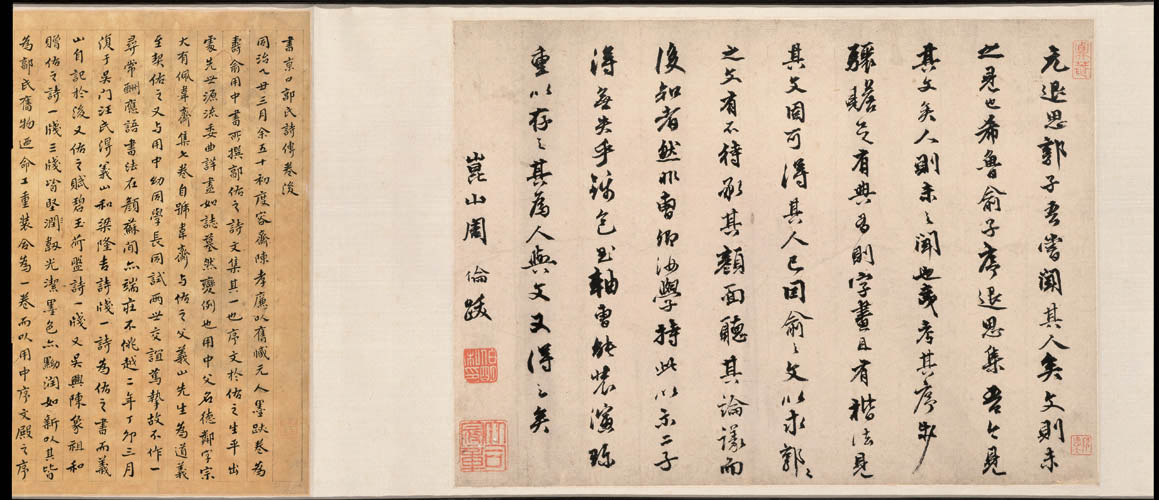 元退思郭子吾嘗聞其人矣文則未
之見也希魯俞子序退思集吾今見
其文矣人則未之聞也夷考其序步
驟贍足有典有則字畫且有楷法見
其文因可得其人已因俞之文以求郭之
之文有不待承其顏面聽其論議而
後知者然非曹卿汝學特此以示二子
得無失乎錦包玉軸曹能襲演珎
重以存之其為人與文又得之矣
崑山周倫跋
書京口郭氏詩傳卷後
同治九年三月余五十初度容齋陳孝廉以舊臧元人墨跡卷為
壽俞用中書所撰郭佑之詩文集其一也序文於佑之生平出
處先世源流委曲詳盡如誌墓然變例也用中父名德鄰字宗
大有佩韋齋集七卷自號韋齋與佑之父義山先生為道義
至契佑之又與用中幼同學長同試兩世交誼篤摯故不作一
尋常酬應語書法在顏蘇間亦端莊不佻越二年丁卯三月
復于吳門汪氏得義山和梁隆吉詩牋一詩為佑之書而義
山自記於後又佑之賦碧玉荷盤詩一牋又吳興陳篆祖和
贈佑之詩一牋三牋皆堅潤
光潔墨色亦黝潤如新以其皆
為郭氏舊物亟命工重裝合為一卷而以用中序文殿之序